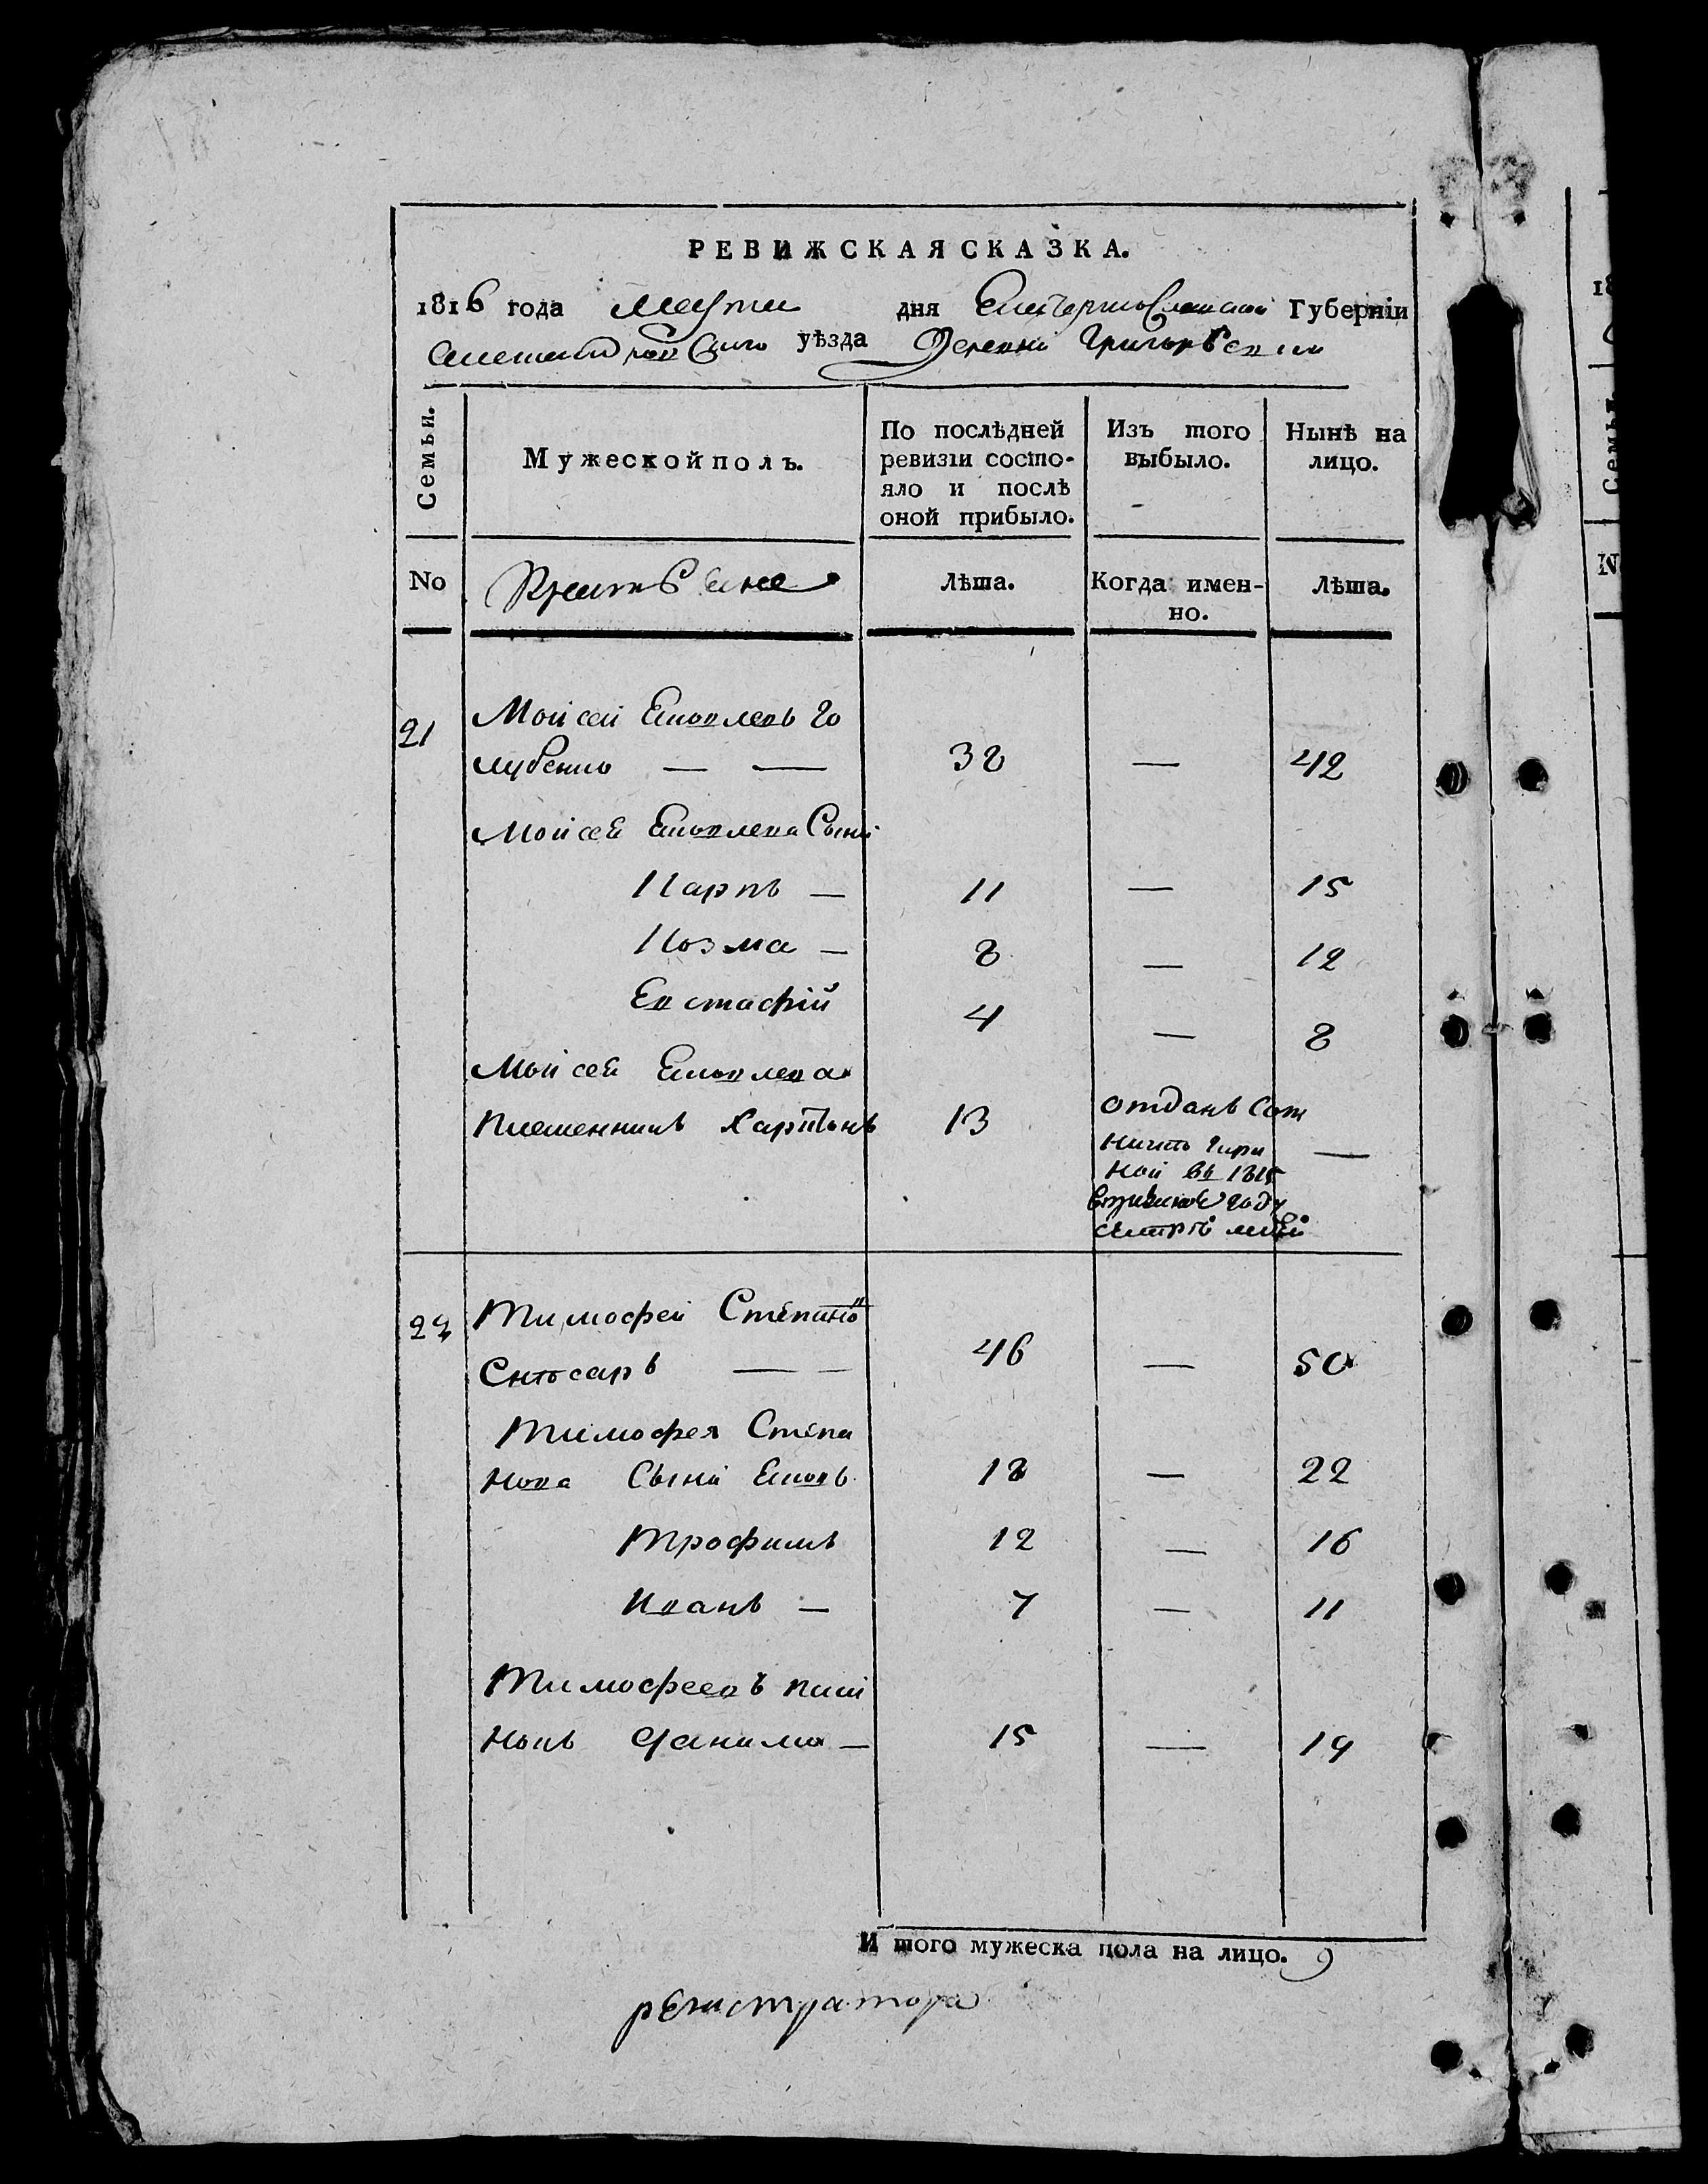 РЕВИЖСКАЯ СКАЗКА.
1816 года Марта дня Екатеринославской Губерніи
Александровскаго уѣзда Деревни Григорьевки
Семьи.
Мужеской полъ.
По послѣдней ревизіи состо-
яло и послѣ
оной прибыло.
Изъ того
выбыло.
Нынѣ на
лицо.
No
Крестьяне
Лѣта.
Когда имен-
но.
Лѣта.
21 Моисей Яковлевъ Го
лубенко — — 38 — 42
Моисея Яковлева Сыны
Карпъ — 11 — 15
Козма — 8 — 12
Евстафій 4 — 8
Моисея Яковлева
племенникъ Харитонъ 13 —
отданъ
въ 1815
году
22 Тимофей Степановъ
Снѣсарь — — 46 — 50
Тимофея Степа
нова Сыны Яковъ 18 — 22
Трофимъ 12 — 16
Иванъ — 7 — 11
Тимофеевъ плем
Данило — 15 — 19
И того мужеска пола на лицо. 9
регистратора
18
Семьи
N